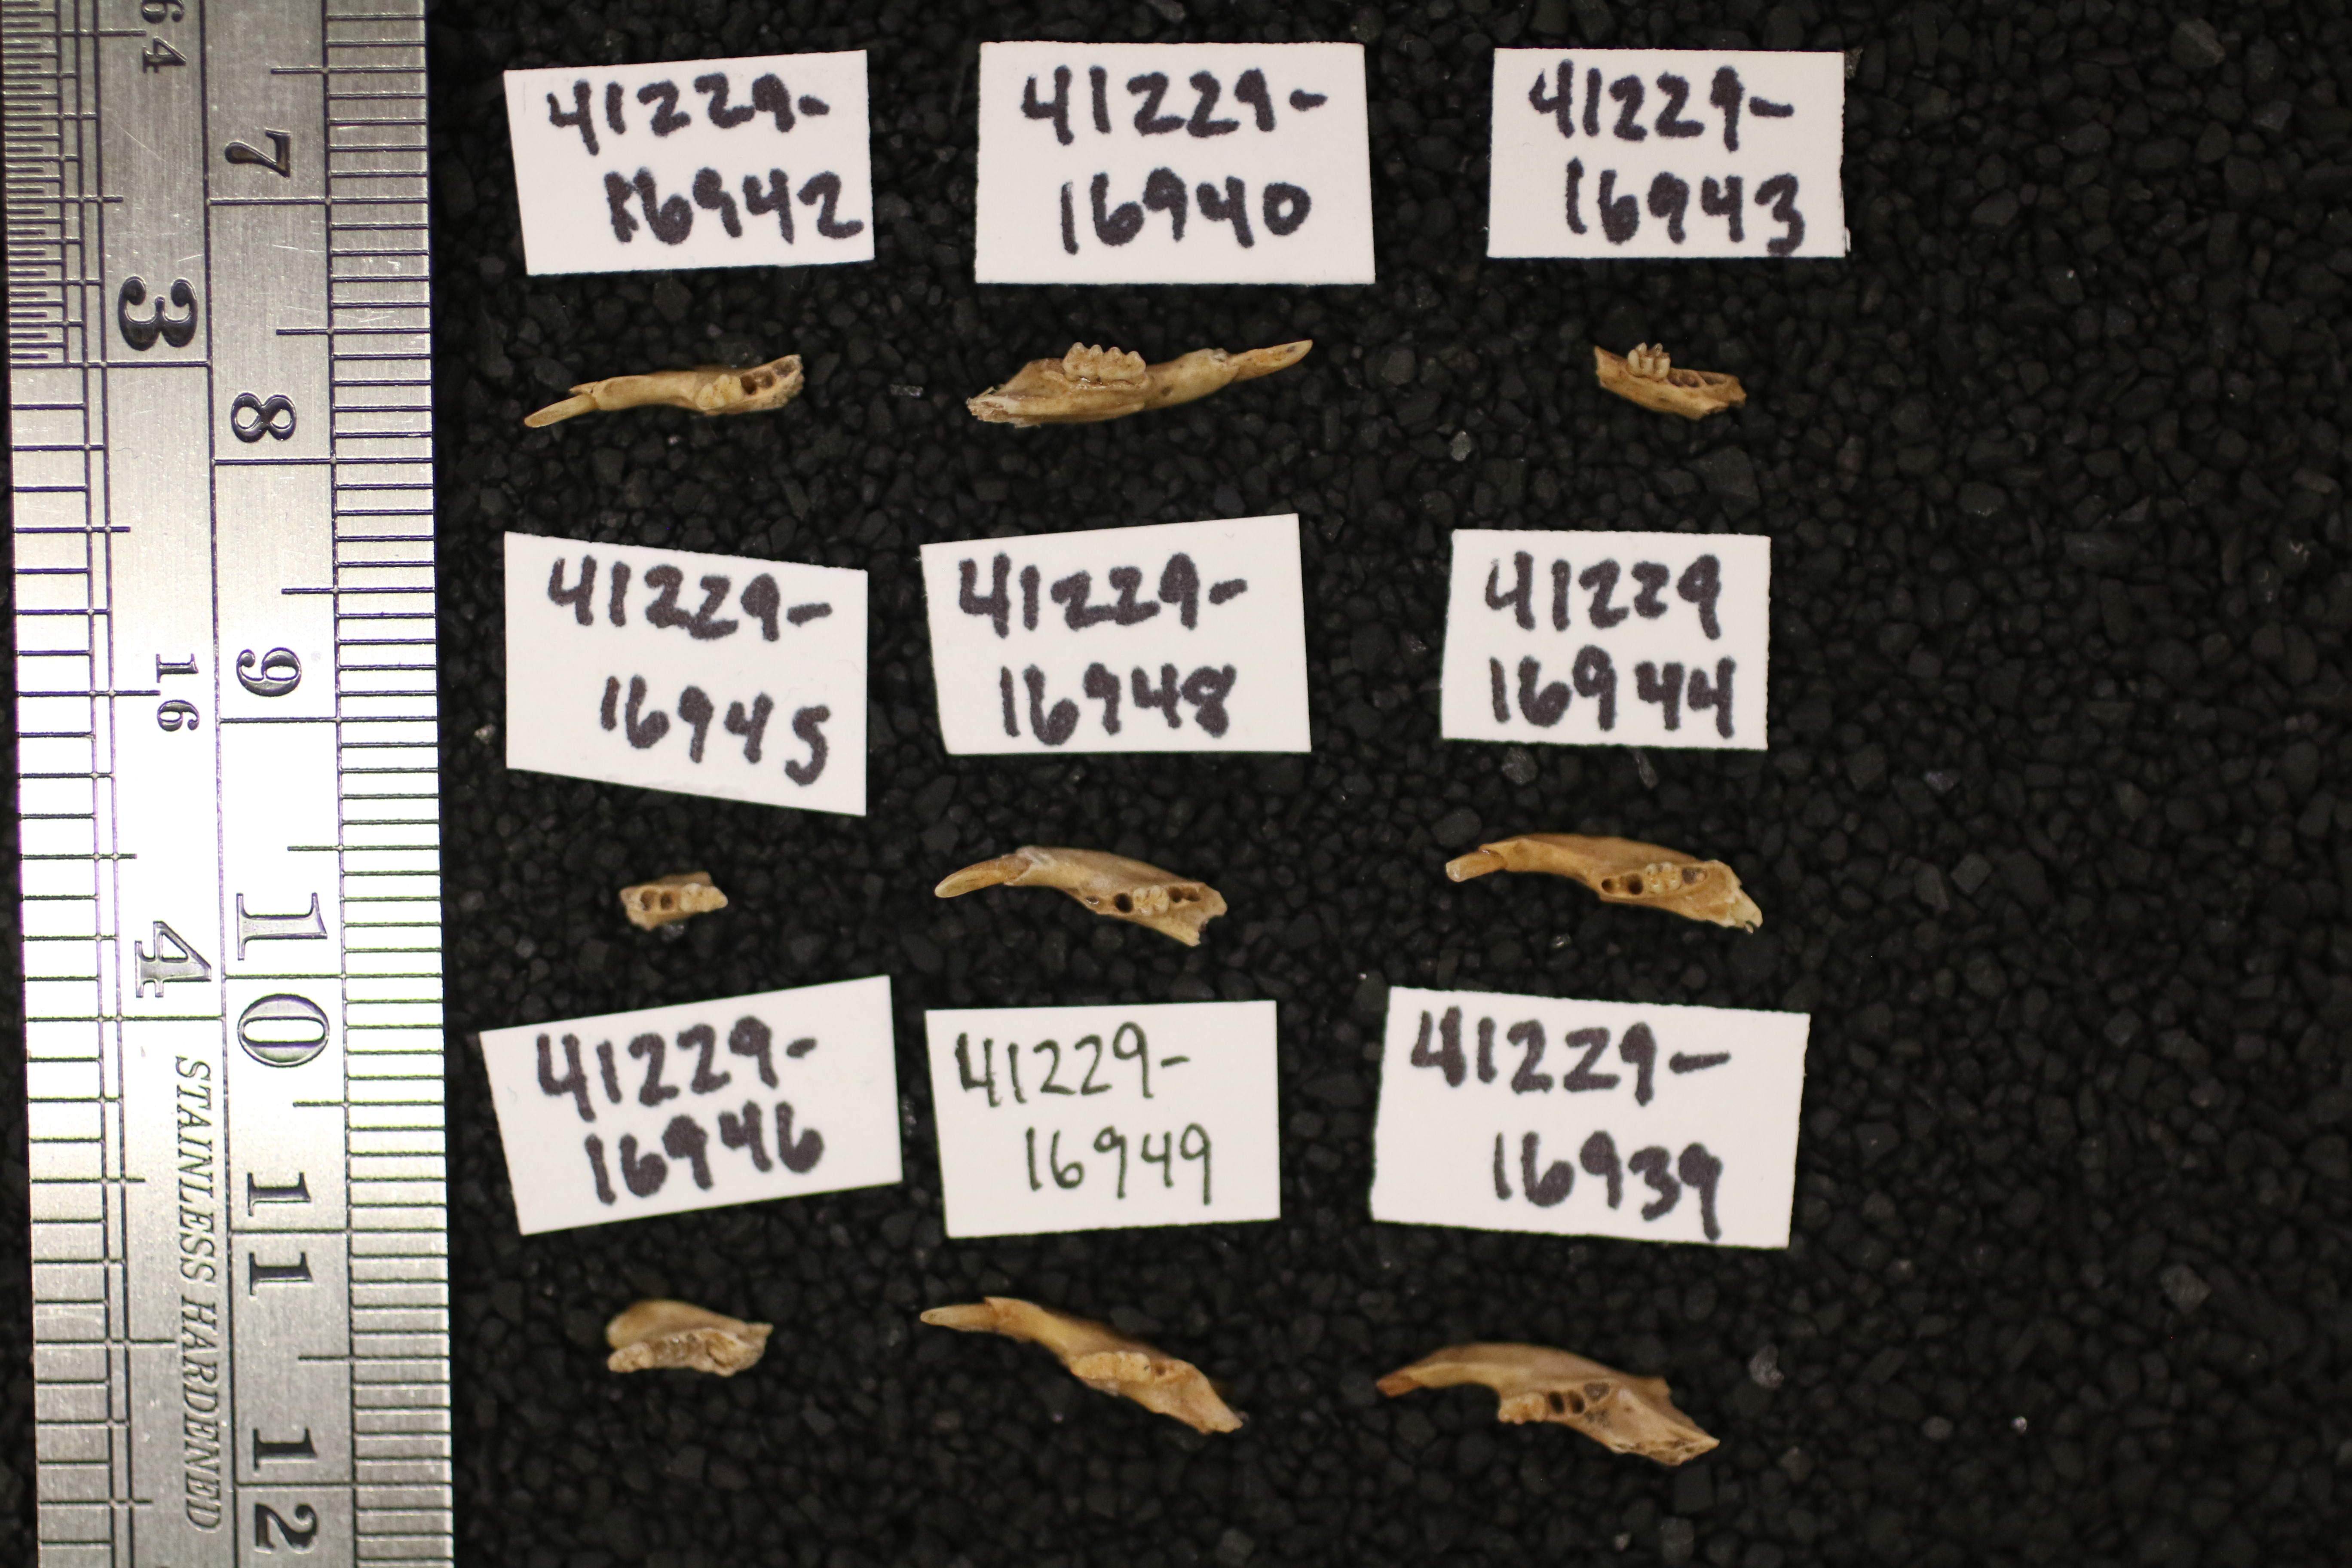 64
7
3
8
16
9
10
4
STAINLESS HARDENED
11
12
41229-
16942
41229-
16940
41229-
16943
41229-
16945
41229-
16948
41229
16944
41229-
16946
41229-
16949
41229-
16939